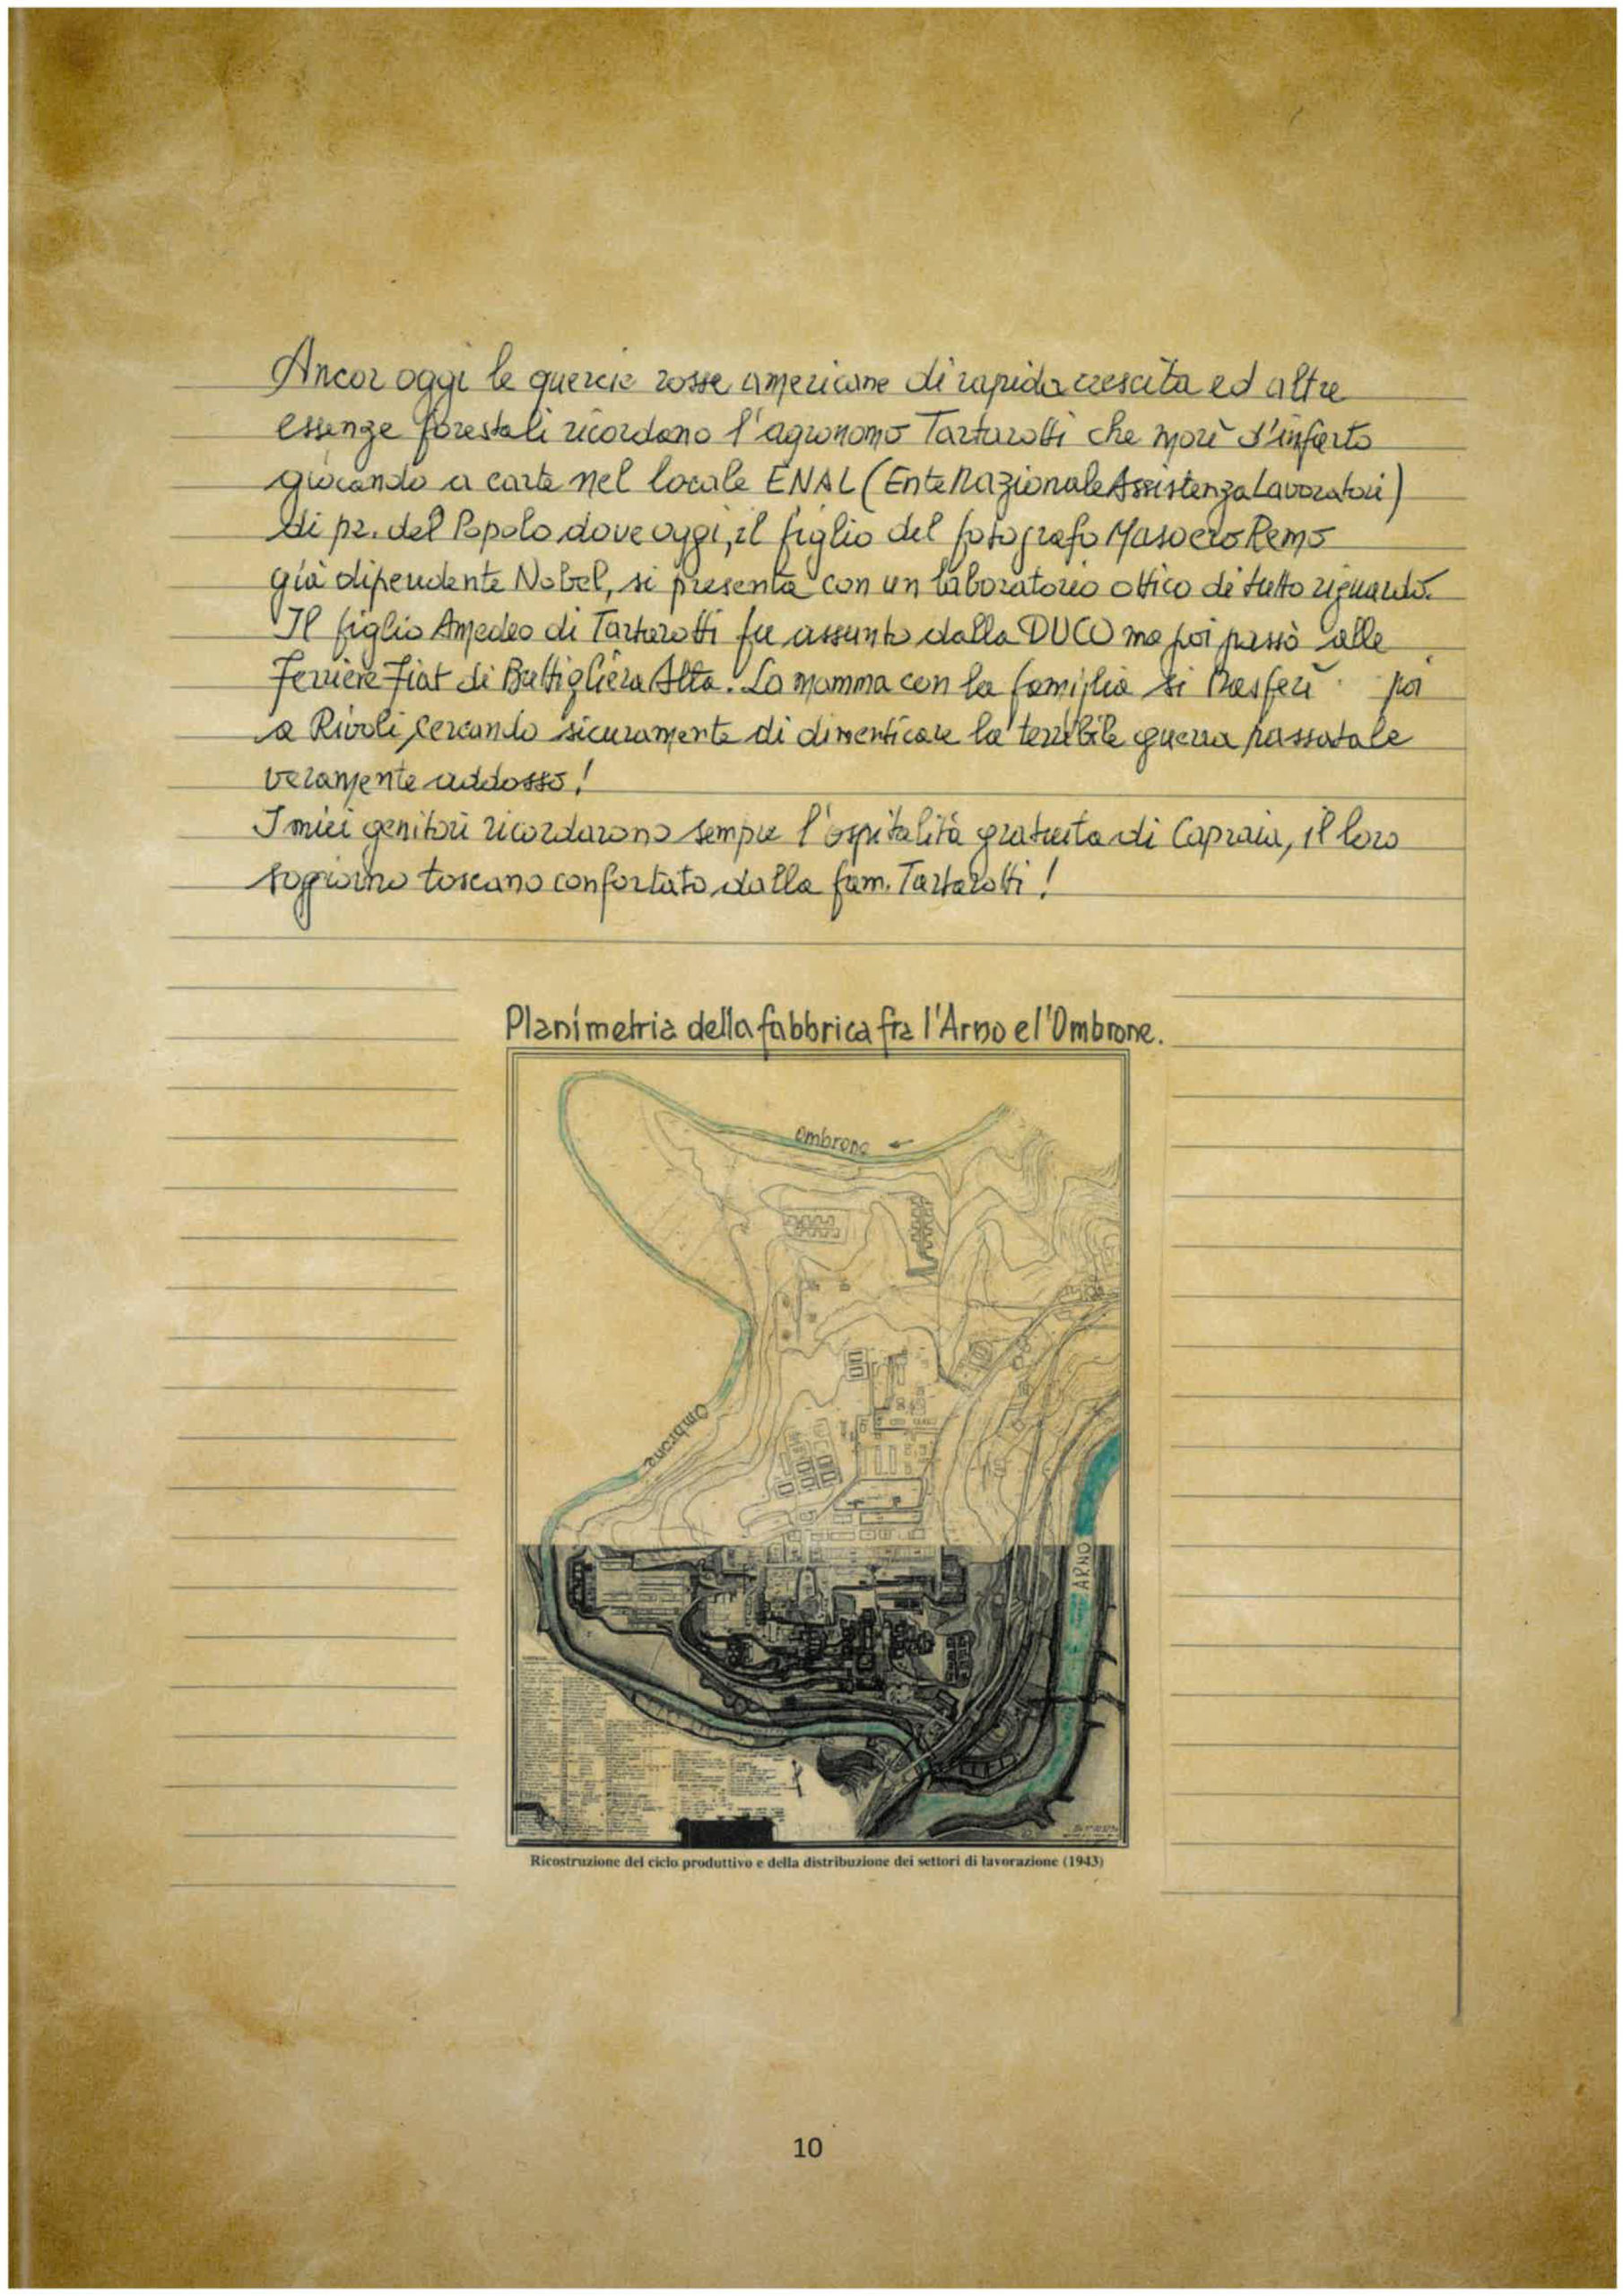 Ancor oggi le quercie rosse americane di rapida crescita ed altre
essenze forestali ricordano l'agronomo Tartarotti che morì d'infarto
giocando a carte nel locale ENAL (Ente Nazionale Assistenza Lavoratori)
di pz. del Popolo dove oggi, il figlio del fotografo Masoero Remo
già dipendente Nobel, si presenta con un laboratorio ottico di tutto riguardo.
Il figlio Amedeo di Tartarotti fu assunto dalla DUCO ma poi passò alle
Ferriere Fiat di Buttigliera Alta. La mamma con la famiglia si trasferì poi
a Rivoli cercando sicuramente di dimenticare la terribile guerra passatale
veramente addosso!
I miei genitori ricordarono sempre l'ospitalità gratuita di Capraia, il loro
soggiorno toscano confortato dalla fam. Tartarotti!
Planimetria della fabbrica fra l'Arno e l'Ombrone.
Ombrone
Ombrone
ARNO
Ricostruzione del ciclo produttivo e della distribuzione dei settori di lavorazione (1943)
10